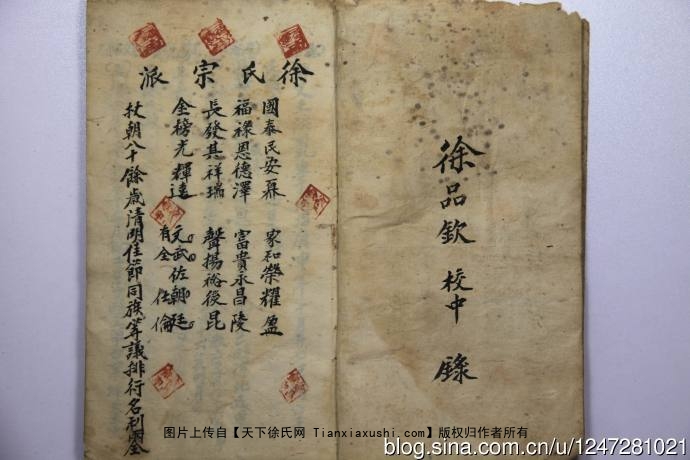 徐氏宗派
國泰民安 家和榮耀盈
福祿恩德澤 富貴永昌陵
長發其祥瑞 聲揚裕後昆
金榜光輝遠 文武佐朝廷
有全仕倫
杖朝八十餘歲清明佳節同族等議排行名列
徐品欽 校中 錄
图片上传自【天下徐氏网 Tianxiaxushi.com】版权归作者所有
blog.sina.com.cn/u/1247281021